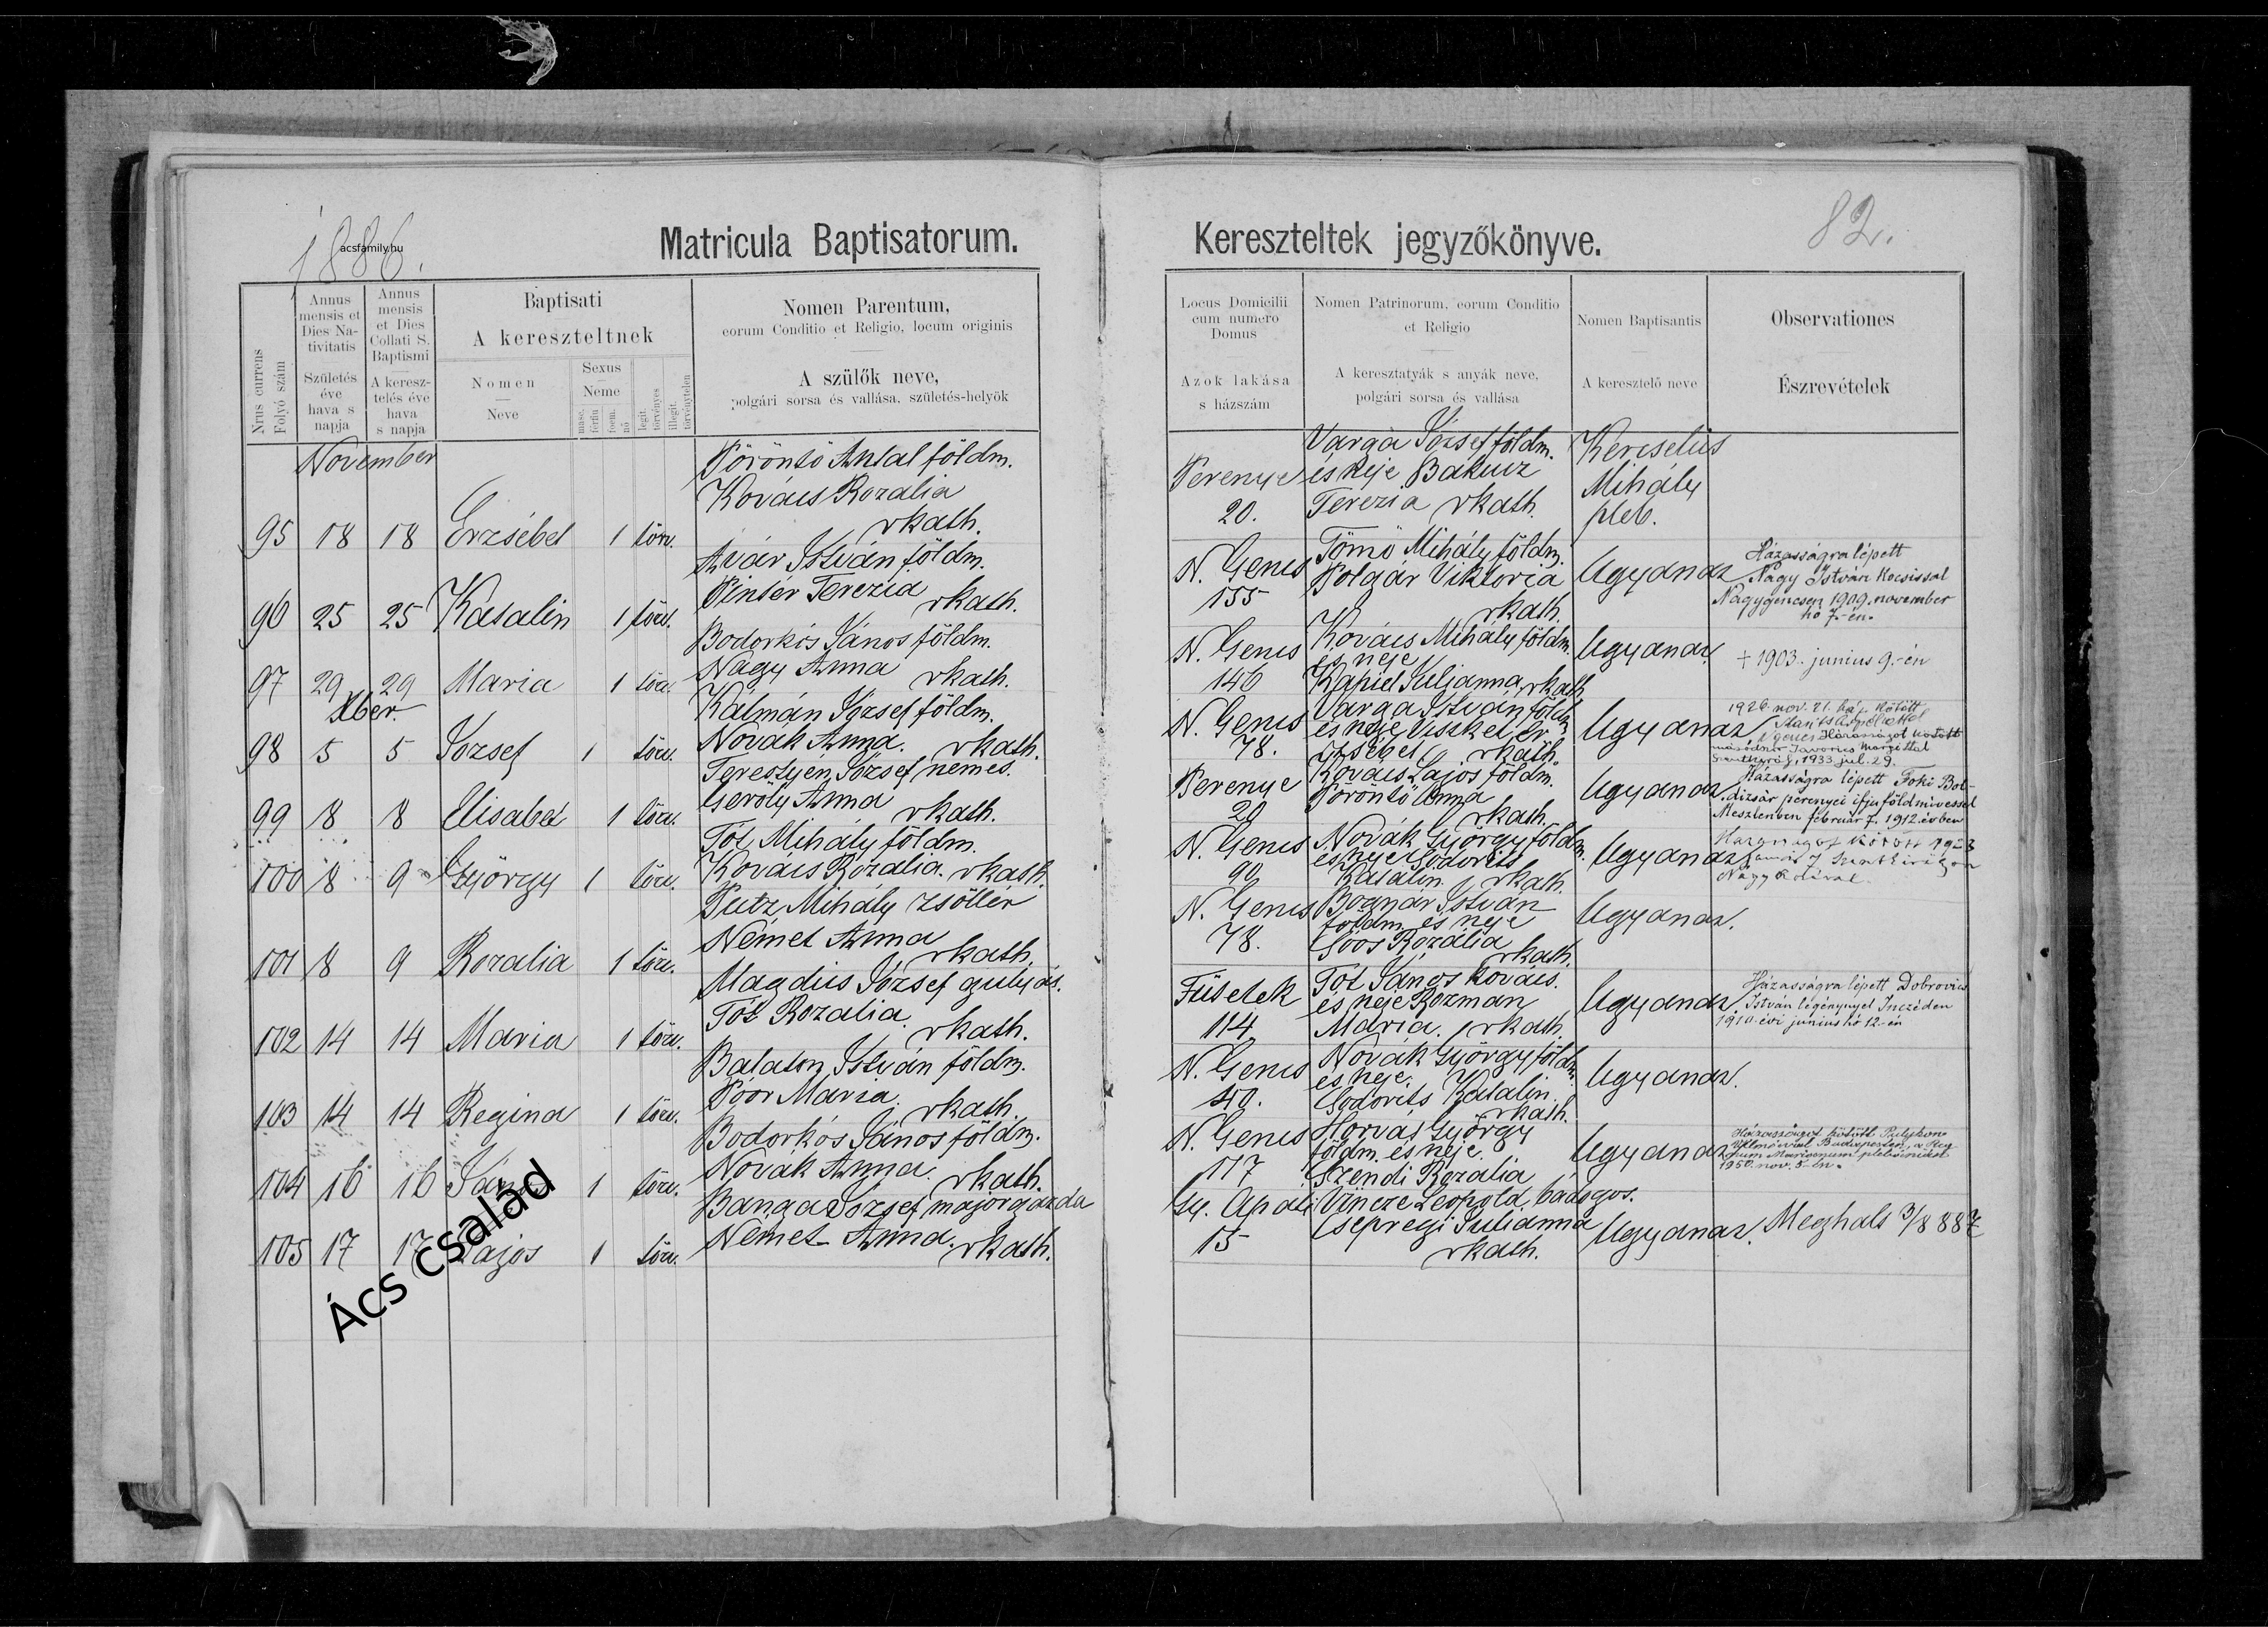 1886.
acsfamily.hu
Matricula Baptisatorum.
Nrus currens
Folyó szám
Annus
mensis et
Dies Na-
tivitatis
Születés
éve
hava s
napja
Annus
mensis
et Dies
Collati S.
Baptismi
A keresz-
telés éve
hava
s napja
Baptisati
A kereszteltnek
Nomen
Neve
Sexus
Neme
masc.
férfiu
foem.
nő
legit.
törvényes
illegit.
törvénytelen
Nomen Parentum,
eorum Conditio et Religio, locum originis
A szülők neve,
polgári sorsa és vallása, születés-helyök
November
95 18 18 Erzsébet 1 törv.
Pöröntő Antal földm.
Kovács Rozalia
rkath.
96 25 25 Katalin 1 törv.
Avár István földm.
Pintér Terezia
rkath.
97 29 29 Maria 1 törv.
Bodorkós János földm.
Nagy Anna
rkath.
Xber.
98 5 5 József 1 törv.
Kálmán József földm.
Novák Anna. rkath.
99 8 8 Elisabet 1 törv.
Terestyen József nemes.
Geröly Anna
rkath.
100 8 9 György 1 törv.
Tót Mihály földm.
Kovács Rozália. rkath.
101 8 9 Rozalia 1 törv.
Putz Mihály zsöllér
Német Anna
rkath.
102 14 14 Maria 1 törv.
Magdics József gulyás.
Tót Rozalia.
rkath.
103 14 14 Regina 1 törv.
Balaton István földm.
Póor Maria.
rkath.
104 16 16 János 1 törv.
Bodorkós János földm.
Novák Anna.
rkath.
105 17 17 Lajos 1 törv.
Banga József majorgazda
Német Anna. rkath.
Ács család
82.
Kereszteltek jegyzőkönyve.
Locus Domicilii
cum numero
Domus
Azok lakása
s házszám
Nomen Patrinorum, eorum Conditio
et Religio
A keresztatyák s anyák neve,
polgári sorsa és vallása
Nomen Baptisantis
A keresztelő neve
Observationes
Észrevételek
Perenye
20.
Varga József földm.
és neje
Terezia rkath.
Mihály
pleb.
N. Gencs
155
Tömő Mihály földm.
Polgár Viktoria
rkath.
Ugyanaz
Házasságra lépett
Nagy István kocsissal
Nagygencsen 1909. november
hó 7-én.
N. Gencs
146
Kovács Mihály földm.
és neje
Julianna rkath
Ugyanaz.
+ 1903. junius 9.-én
N. Gencs
78.
Varga István földm
és neje Viszket Er-
zsébet rkath.
Ugyanaz
1926. nov. 21. há
Házasságot kötött
másodszor Javorics Margittal
1933. jul. 29.
Perenye
20
Kovács Lajos földm.
Pöröntő Anna
rkath.
Ugyanaz
Házasságra lépett Foki Bol-
dizsár perenyei ifju földmivessel
Meszlenben február 7. 1912. évben
N. Gencs
90
Novák György földm.
és neje Godorits
Katalin rkath.
Ugyanaz
Házasságot kötött 1923
Nagy
N. Gencs
78.
Bognár István
földm. és neje
Soós Rozália
rkath.
Ugyanaz.
Füsetek
114
Tót János kovács.
és neje Rozman
Mária. rkath.
Ugyanaz.
Házasságra lépett Dobrovics
István legénynyel Inczéden
1910. évi junius hó 12-én
N. Gencs
40.
Novák György földm.
és neje.
Godorits Katalin.
rkath.
Ugyanaz.
N. Gencs
117
Horvát György
földm. és neje.
Szendi Rozalia
Ugyanaz
Házasságot kötött
Budapesten, a Reg-
num Marianum plébánián
1950. nov. 5-én.
Gy. Apáti
15
Vincze Leopold bádogos.
Csepregi Julianna
rkath.
Ugyanaz.
Meghalt 3/8 887